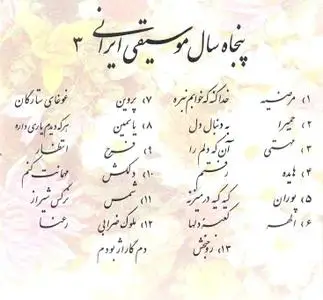 پنجاه سال موسیقی ایرانی ۳
۱) مرضیه خدا کنه که خوابم نبره
۲) حمیرا به دنبال دل
۳) مهستی آن که دلم را
۴) هایده رفتم
۵) پوران کیه کیه در میزنه
۶) الهه کعبه دلها
۷) پروین غوغای ستارگان
۸) یاسمین هر که دیدم یاری داره
۹) فرح انتظار
۱۰) دلکش کنم
۱۱) شمس نرگس شیراز
۱۲) ملوک ضرابی رعنا
۱۳) روحبخش دم گاراژ بودم